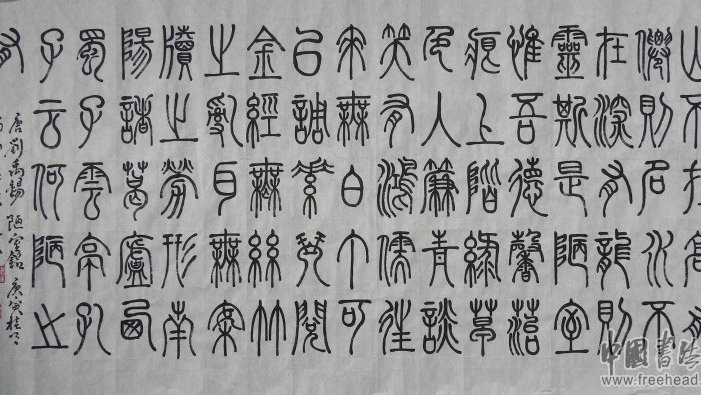 山不在高有
僊則名水不
在深有龍則
靈斯是陋室
惟吾德馨苔
痕上階綠草
色入簾青談
笑有鴻儒往
來無白丁可
以調素琴閱
金經無絲竹
之亂耳無案
牘之勞形南
陽諸葛廬西
蜀子雲亭孔
子云何陋之
有
唐劉禹錫陋室銘庚寅桂
中國書法
www.freehead.